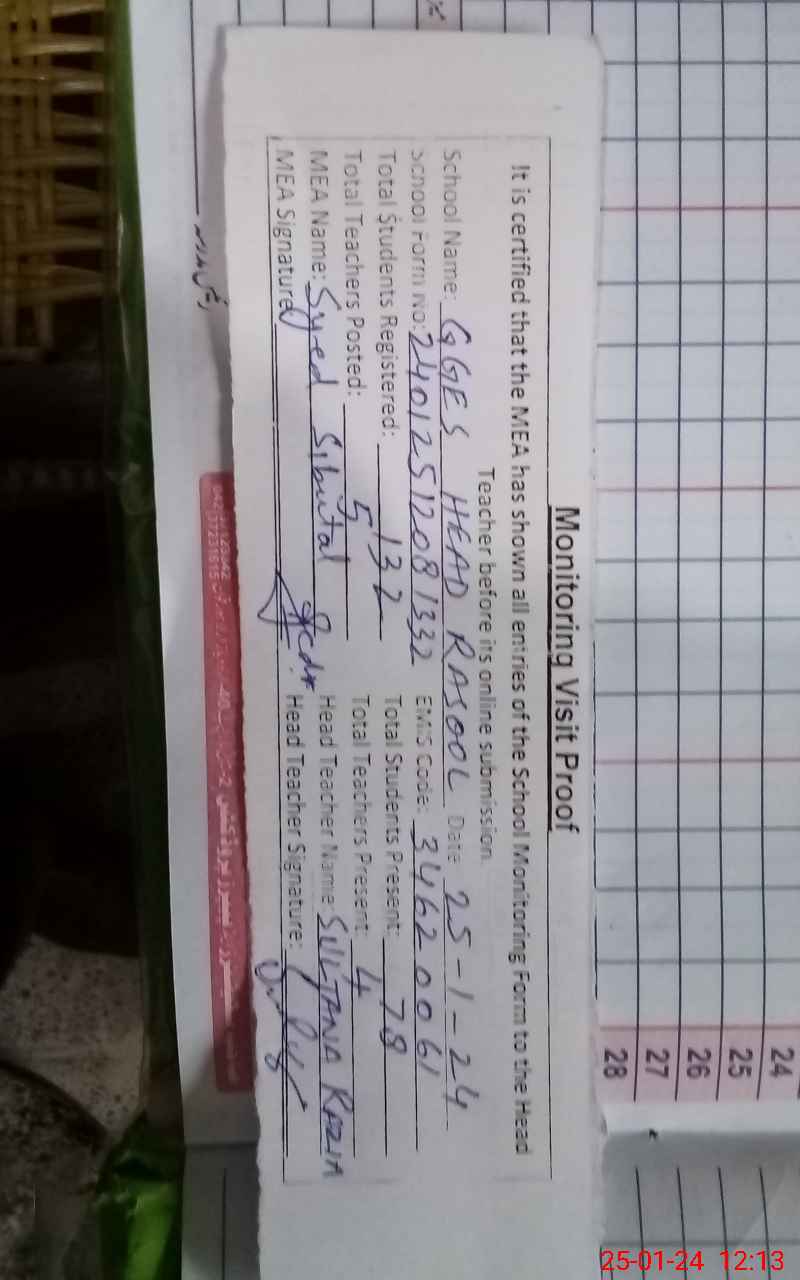 Monitoring Visit Proof
It is certified that the MEA has shown all entries of the School Monitoring Form to the Head
Teacher before its online submission.
School Name: GGES HEAD RASOOL Date: 25-1-24
School Form No: 24012512081332 EMIS Code: 34620061
Total Students Registered: 132 Total Students Present: 78
Total Teachers Posted: 5 Total Teachers Present: 4
MEA Name: Syed Head Teacher Name: SULTANA RAZIA
MEA Signature Head Teacher Signature:
24
25
26
27
28
25-01-24 12:13